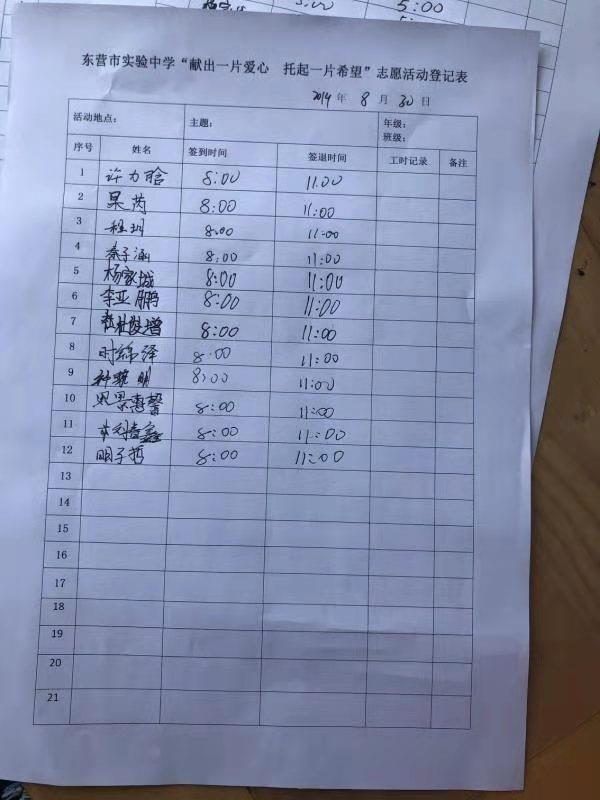 5:00
东营市实验中学“献出一片爱心 托起一片希望”志愿活动登记表
2019 年 8 月 30 日
活动地点： 主题： 年级：
班级：
序号 姓名 签到时间 签退时间 工时记录 备注
1 许力晗 8:00 11:00
2 果芮 8:00 11:00
3 程玥 8:00 11:00
4 秦子涵 8:00 11:00
5 杨家城 8:00 11:00
6 李亚鹏 8:00 11:00
7 8:00 11:00
8 时绵泽 8:00 11:00
9 8:00 11:00
10 8:00 11:00
11 8:00 11:00
12 明子哲 8:00 11:00
13
14
15
16
17
18
19
20
21